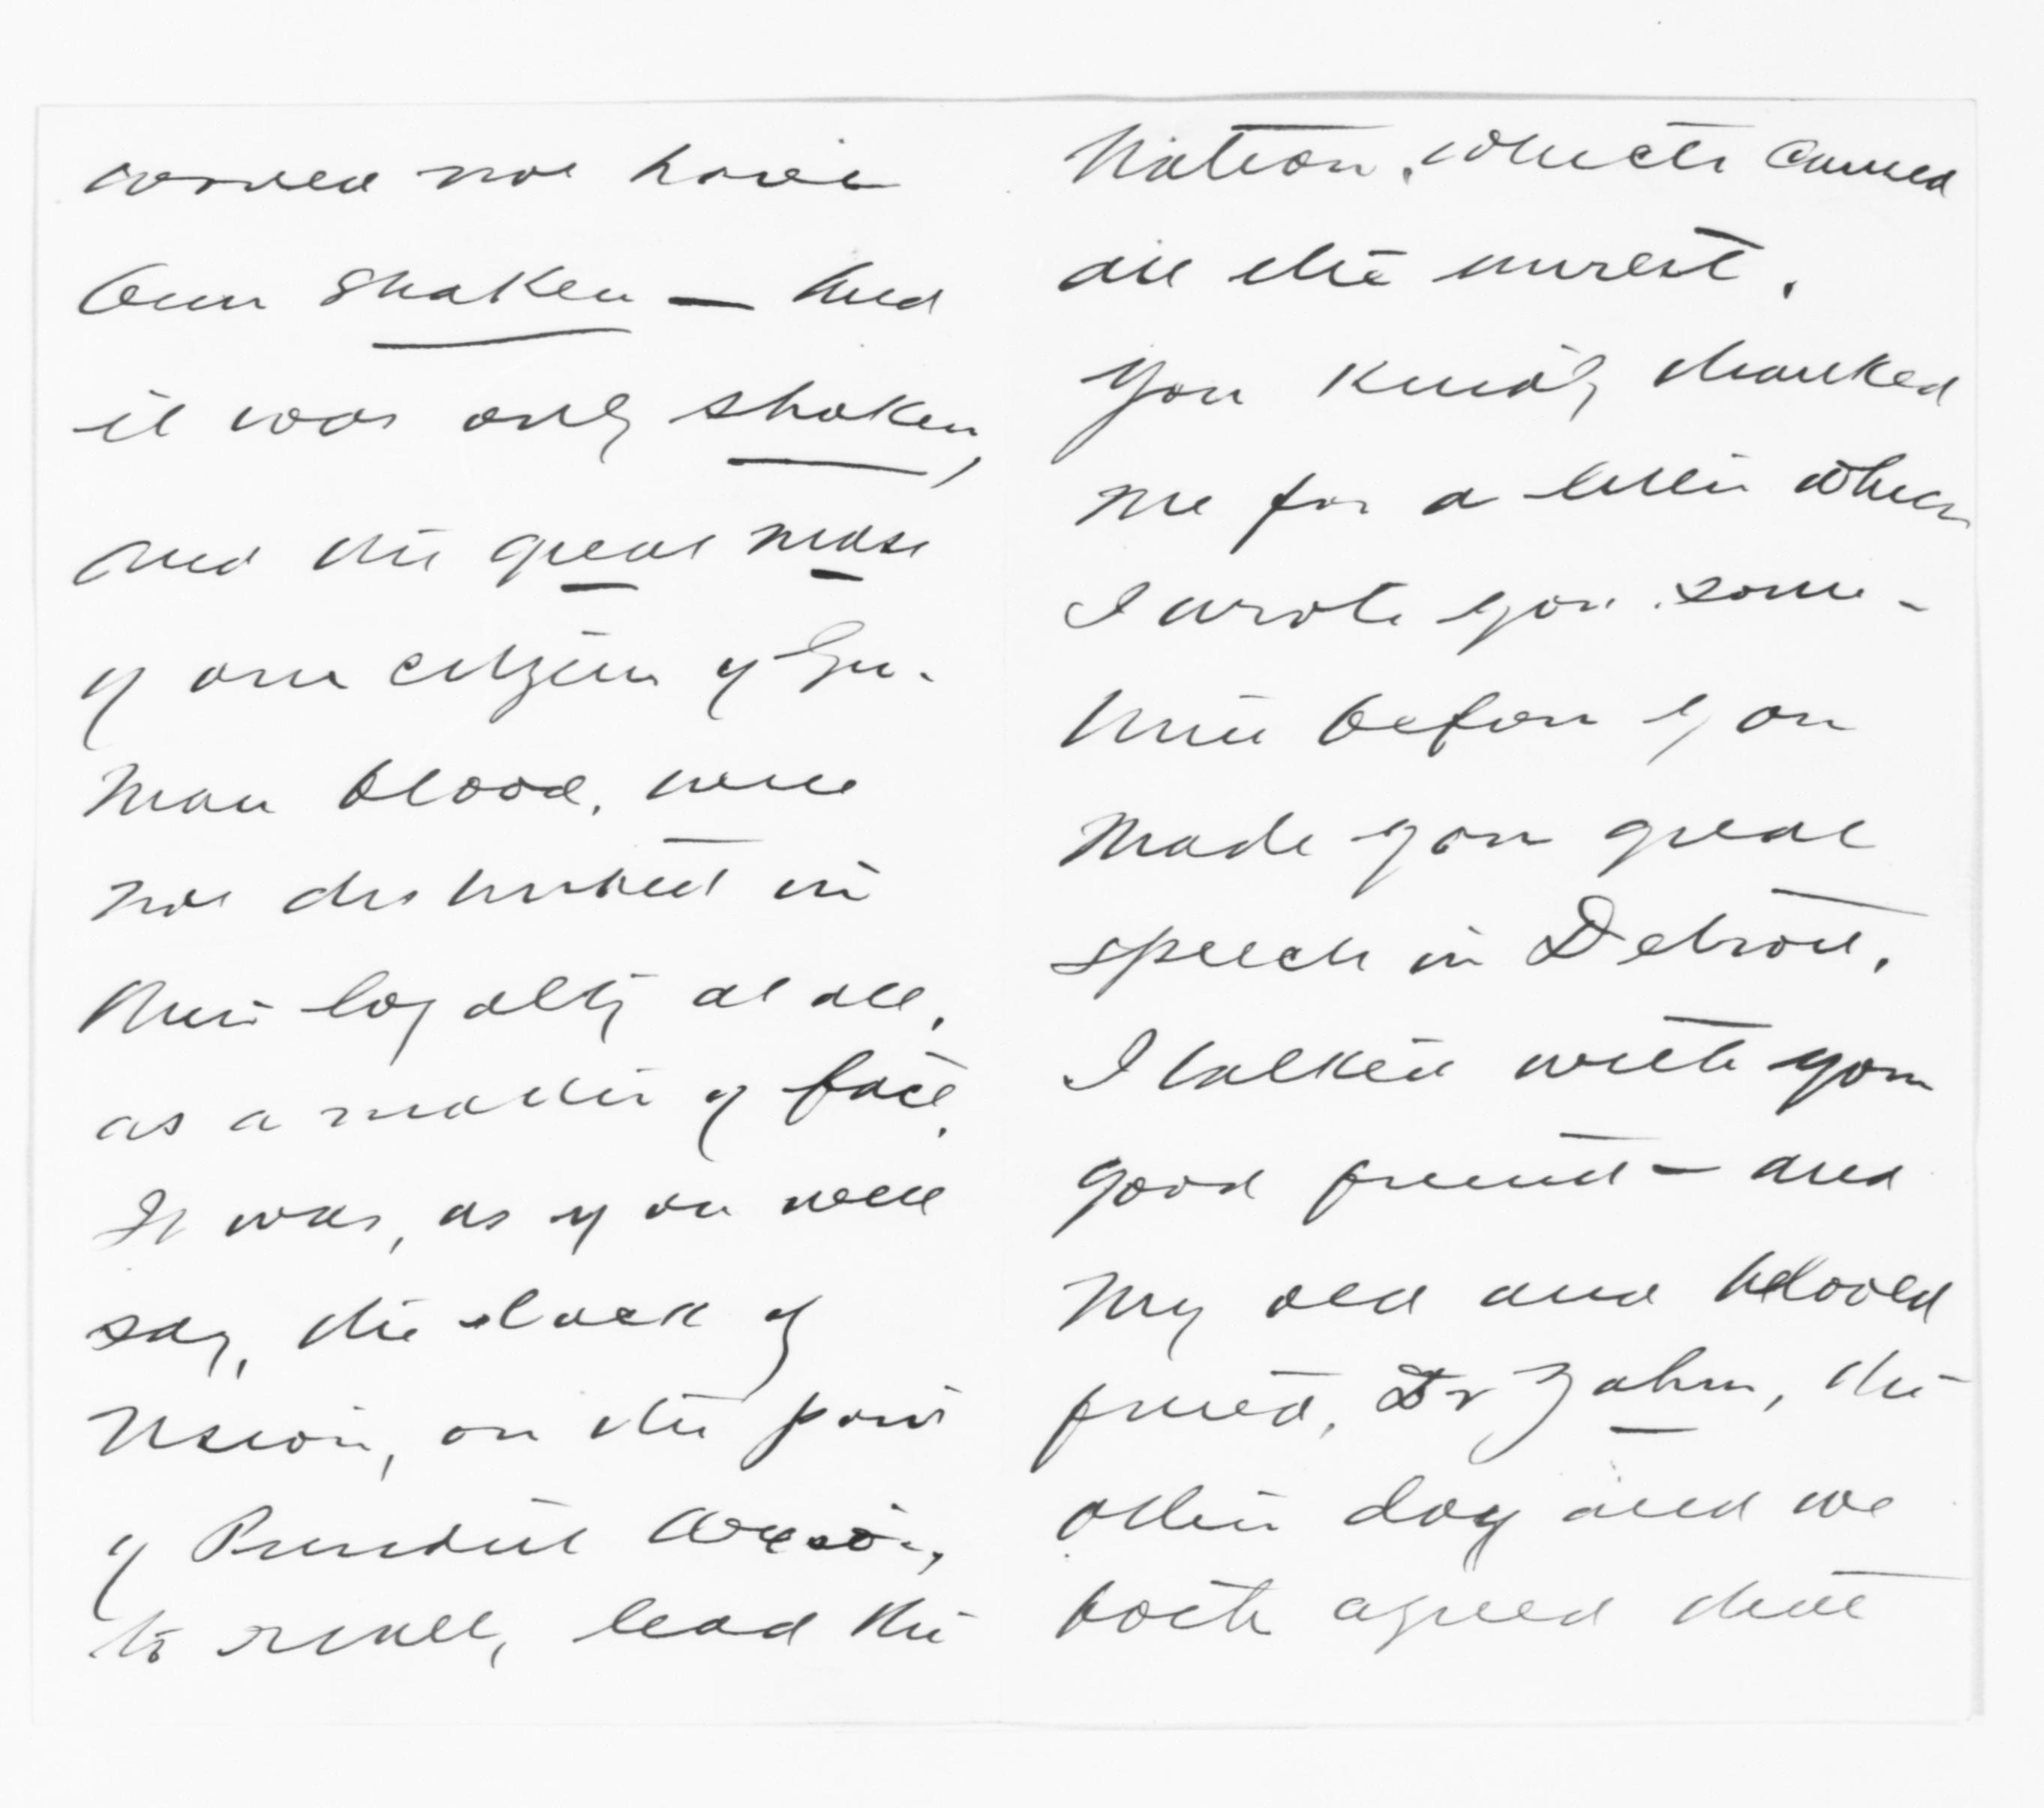 would not have
been shaken — And
it was only shaken,
and the great mass
of our citizens of Ger-
man blood, were
not disturbed in
their loyalty at all,
as a matter of fact.
It was, as you well
say, the lack of
vision, on the part
of President Wilson,
to really lead the
Nation, which caused
all the unrest.
You kindly thanked
me for a letter which
I wrote you some-
time before you
made your great
speech in Detroit.
I talked with your
good friend — and
my old and beloved
friend, Dr Zahm, the
other day and we
both agreed that